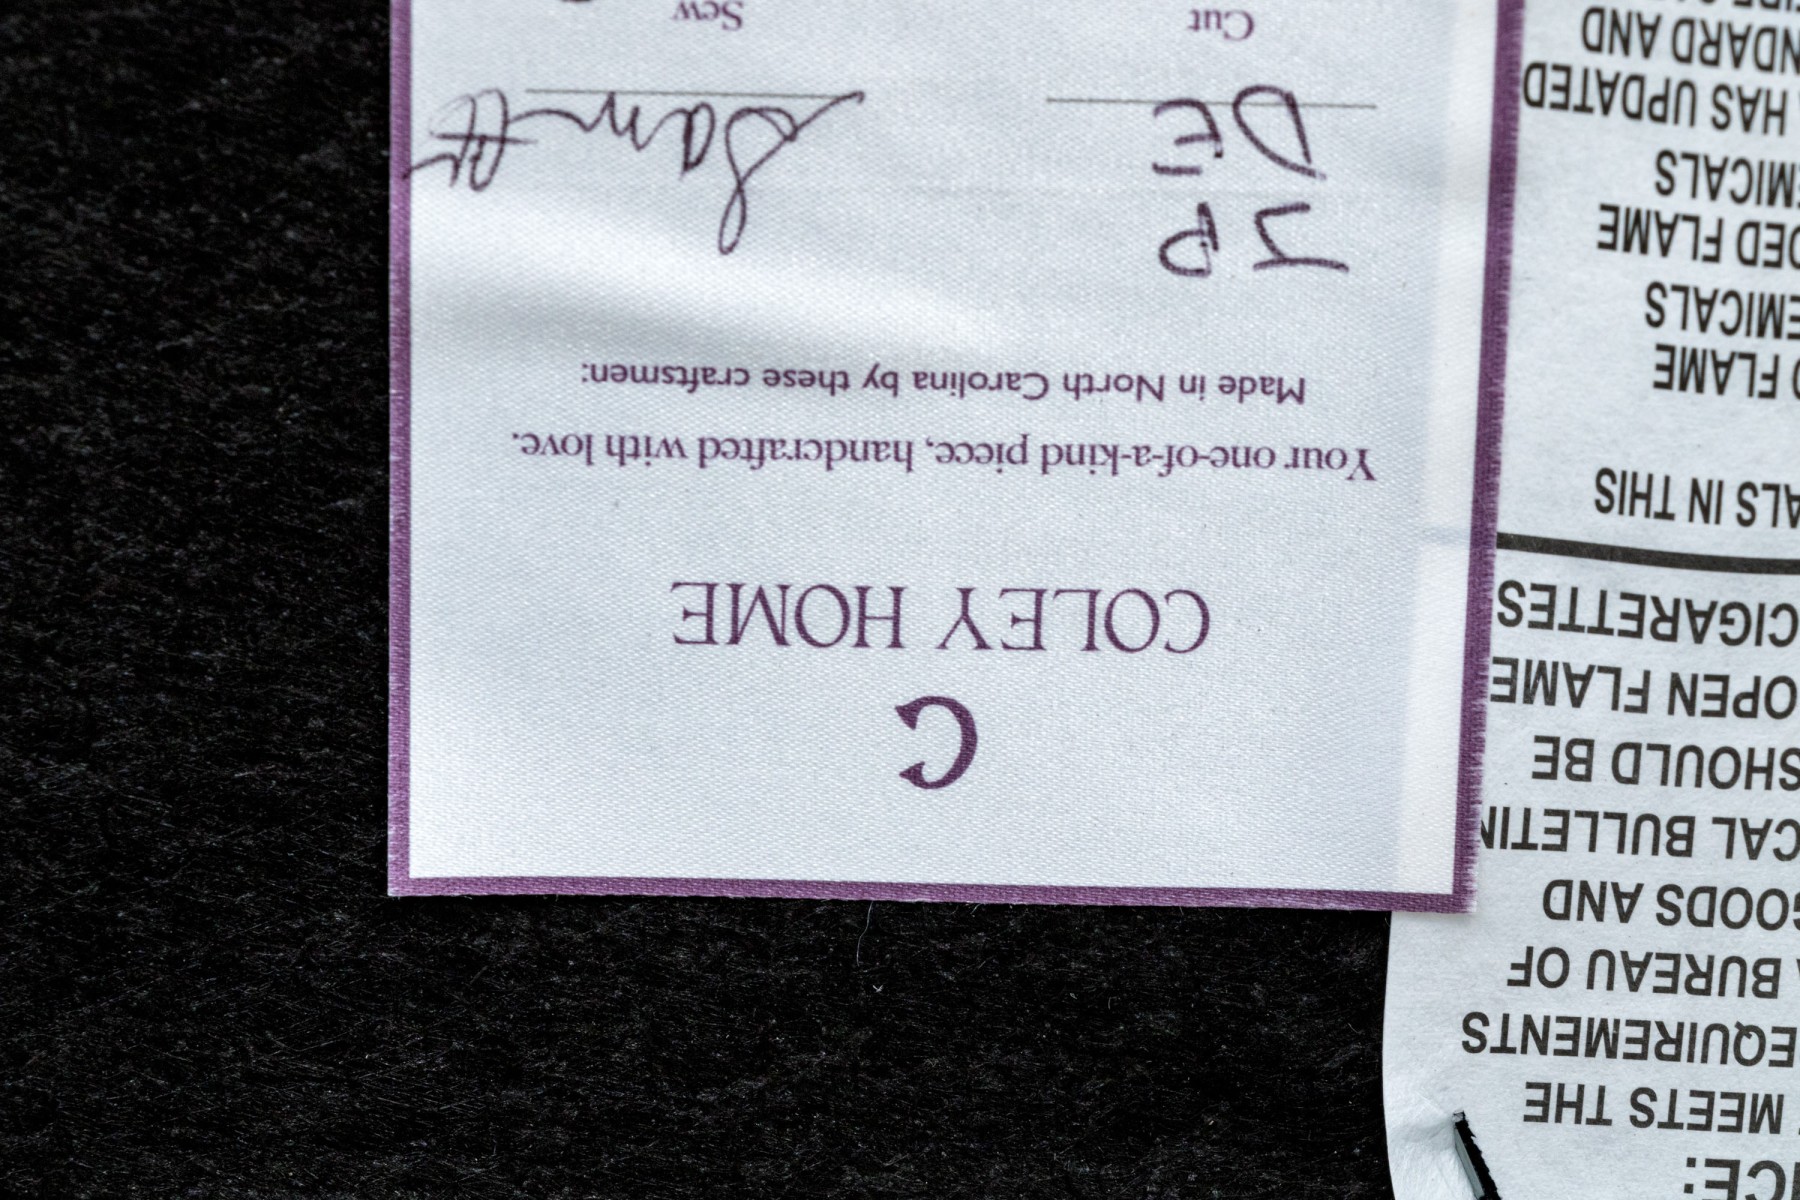 C
COLEY HOME
Your one-of-a-kind piece, handcrafted with love.
Made in North Carolina by these craftsmen:
JP
DE
Cut
Sew
ICE:
MEETS THE
EQUIREMENTS
BUREAU OF
GOODS AND
CAL BULLETIN
SHOULD BE
OPEN FLAME
CIGARETTES
ALS IN THIS
D FLAME
EMICALS
DED FLAME
EMICALS
HAS UPDATED
NDARD AND